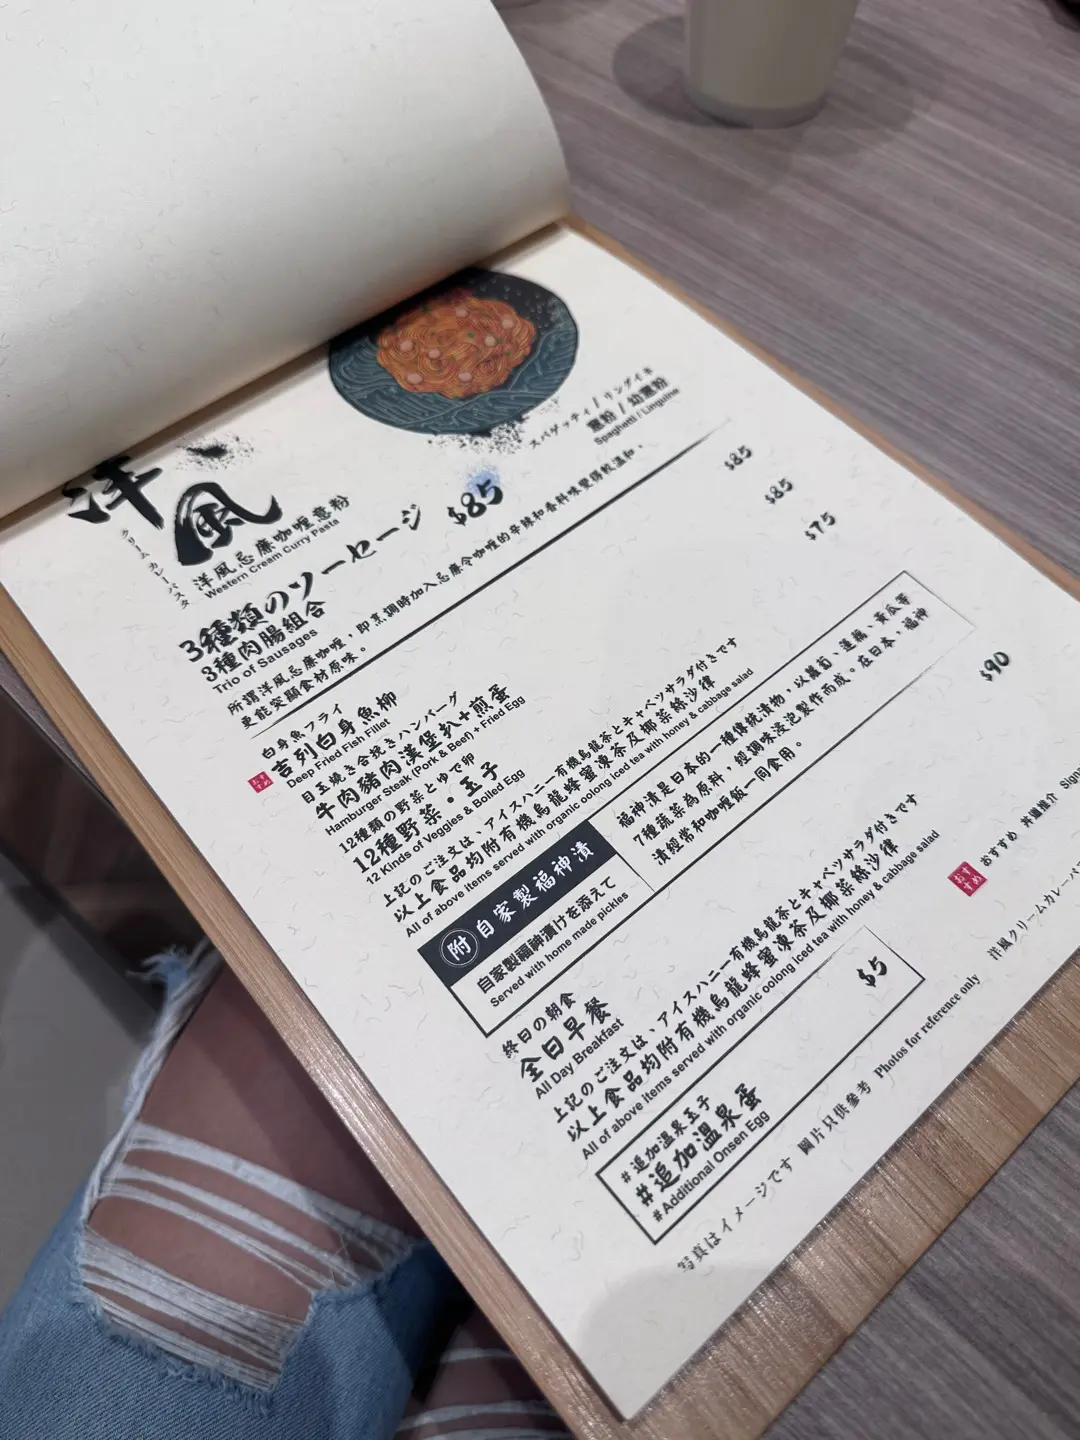 洋風
クリーム カレーパスタ
洋風忌廉咖喱意粉
Western Cream Curry Pasta
スパゲッティ / リングイネ
意粉 / 幼意粉
Spaghetti / Linguine
3種類のソーセージ $85
3種肉腸組合
Trio of Sausages
所謂洋風忌廉咖喱，即烹調時加入忌廉令咖喱的辛辣和香料味變得較溫和、
更能突顯食材原味。
白身魚フライ
吉列白身魚柳 $85
Deep Fried Fish Fillet
おすすめ
目玉焼き合挽きハンバーグ
牛肉豬肉漢堡扒+煎蛋 $85
Hamburger Steak (Pork & Beef) + Fried Egg
12種類の野菜とゆで卵
12種野菜・玉子 $75
12 Kinds of Veggies & Boiled Egg
上記のご注文は、アイスハニー有機烏龍茶とキャベツサラダ付きです
以上食品均附有機烏龍蜂蜜凍茶及椰菜絲沙律
All of above items served with organic oolong iced tea with honey & cabbage salad
附 自家製福神漬
自家製福神漬けを添えて
Served with home made pickles
福神漬是日本的一種傳統漬物，以蘿蔔、蓮藕、黃瓜等
7種蔬菜為原料，經調味浸泡製作而成。在日本，福神
漬經常和咖喱飯一同食用。
終日の朝食
全日早餐 $90
All Day Breakfast
上記のご注文は、アイスハニー有機烏龍茶とキャベツサラダ付きです
以上食品均附有機烏龍蜂蜜凍茶及椰菜絲沙律
All of above items served with organic oolong iced tea with honey & cabbage salad
#追加温泉玉子
#追加溫泉蛋 $5
#Additional Onsen Egg
おすすめ おすすめ 丼通推介
写真はイメージです 圖片只供參考 Photos for reference only
洋風クリームカレーパ